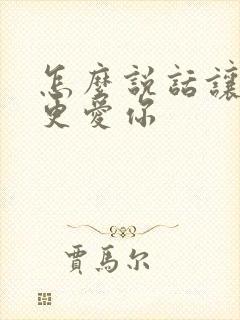 怎麼説話讓
更愛你
賈馬尔